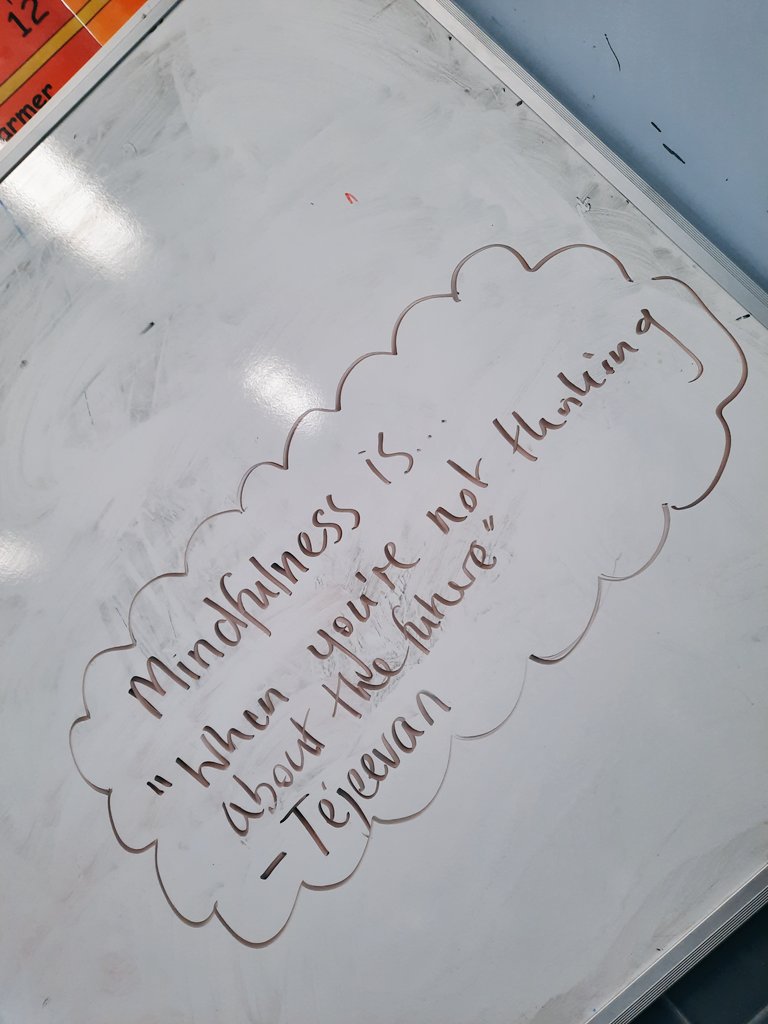 12
armer
Mindfulness is..
"When you're not thinking
about the future"
- Tejeevan